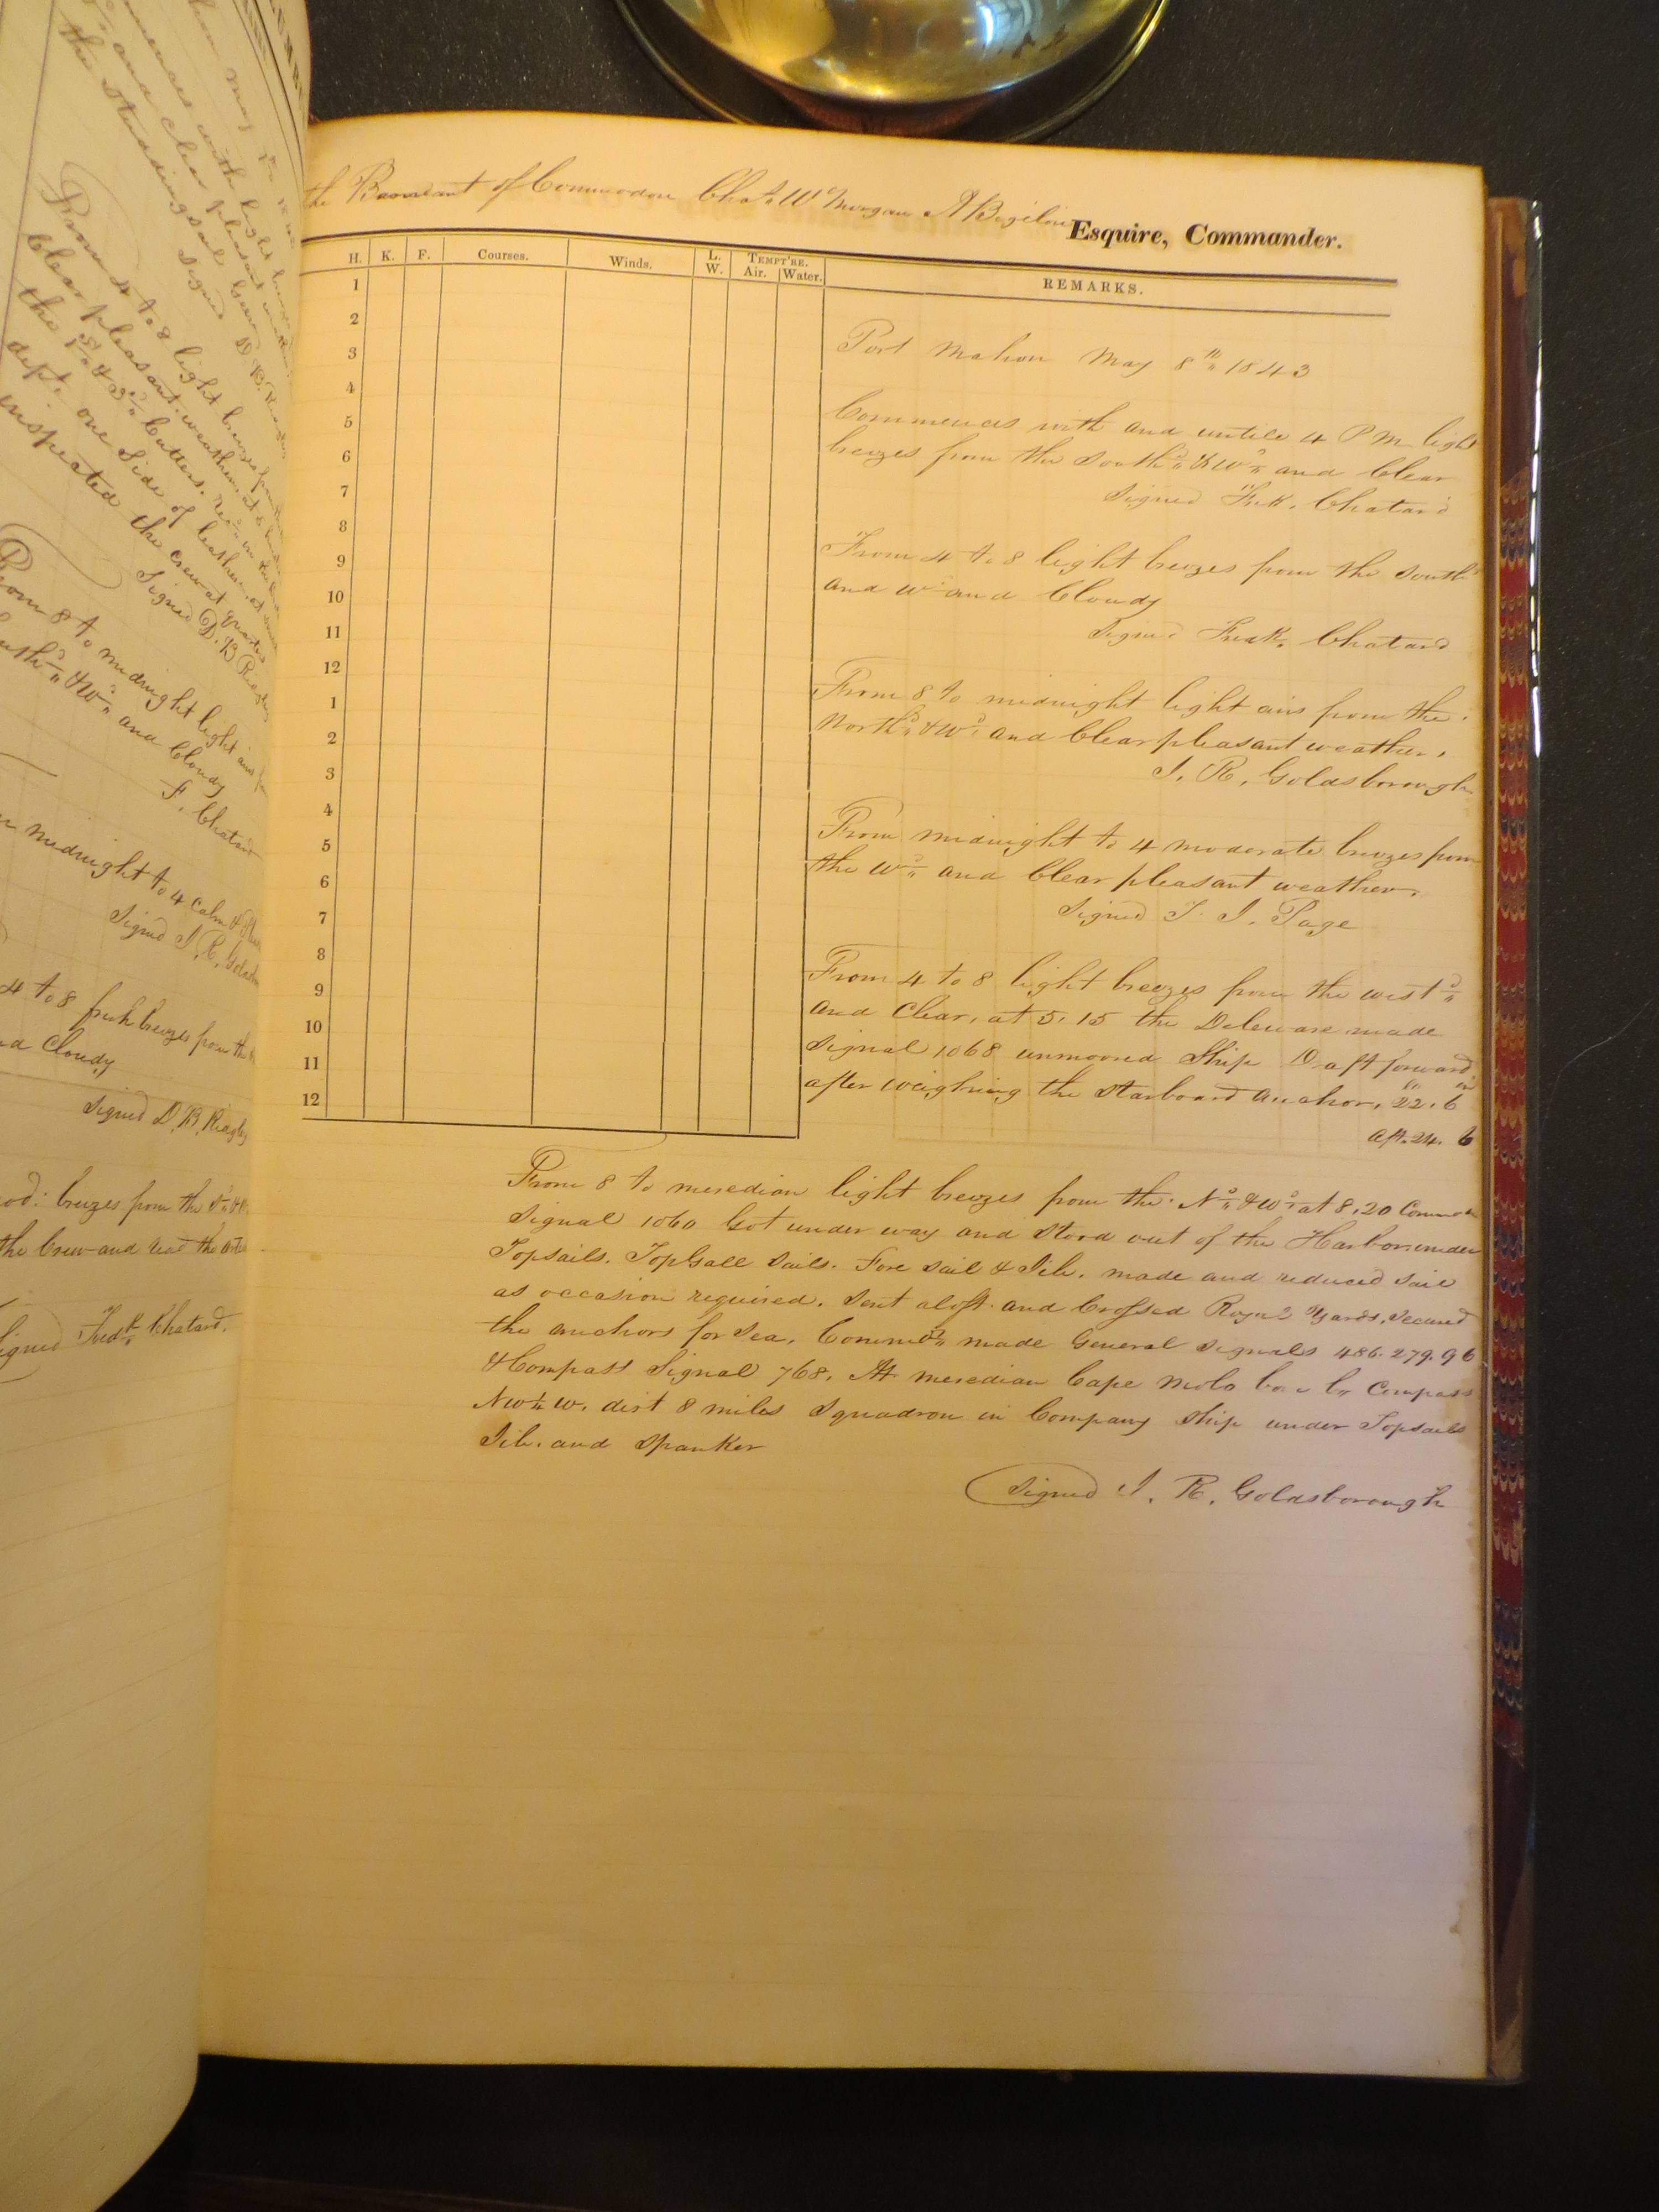 men may
mences with light
and clear pleasant weather
the Studdingsail
Signed
From 4 to 8 light breezes from
Clear pleasant weather, at
the 1st & 3d Cutters.
dept. one Side of leather, at
inspected the crew at quarters
Signed D. B. Ridgley
From 8 to midnight light airs
South'd & W'd and Cloudy
F. Chatard
midnight to 4 Calm &
Signed J. R.
4 to 8 fresh breezes from the
Cloudy
Signed D. B. Ridgley
mod: breezes from the
the Crew and read the
Signed Fredk Chatard.
the Pennant of Commodore Chas W Morgan A Bigelow Esquire, Commander.
H. K. F. Courses. Winds. L. W. TEMPT'RE. Air. Water. REMARKS.
1
2
3
4
5
6
7
8
9
10
11
12
1
2
3
4
5
6
7
8
9
10
11
12
Port Mahon May 8th 1843
Commences with and untile 4 PM light
breezes from the South'd & W'd and Clear
Signed Fredk. Chatard
From 4 to 8 light breezes from the South'd
and W'd and Cloudy
Signed Fredk. Chatard
From 8 to midnight light airs from the
North'd & W'd and Clear pleasant weather.
J. R. Goldsborough
From midnight to 4 moderate breezes from
the W'd and Clear pleasant weather.
Signed T. J. Page
From 4 to 8 light breezes from the west'd
and Clear, at 5.15 the Deleware made
Signal 1068 unmoored Ship Draft forward
after weighing the Starboard Anchor, 22. 6
aft. 24. 6
From 8 to meredian light breezes from the N'd & W'd at 8.20
Signal 1060 Got under way and Stood out of the Harbor under
Topsails. TopGall Sails. Fore Sail & Jib. made and reduced Sail
as occasion required. Sent aloft and Crossed Royal Yards. Secured
the anchors for Sea, Commdr made General Signals 486. 279. 96
& Compass Signal 768. At meredian Cape Molo bore by Compass
NW 1/4 W. dist 8 miles Squadron in Company Ship under Topsails
Jib. and Spanker
Signed J. R. Goldsborough